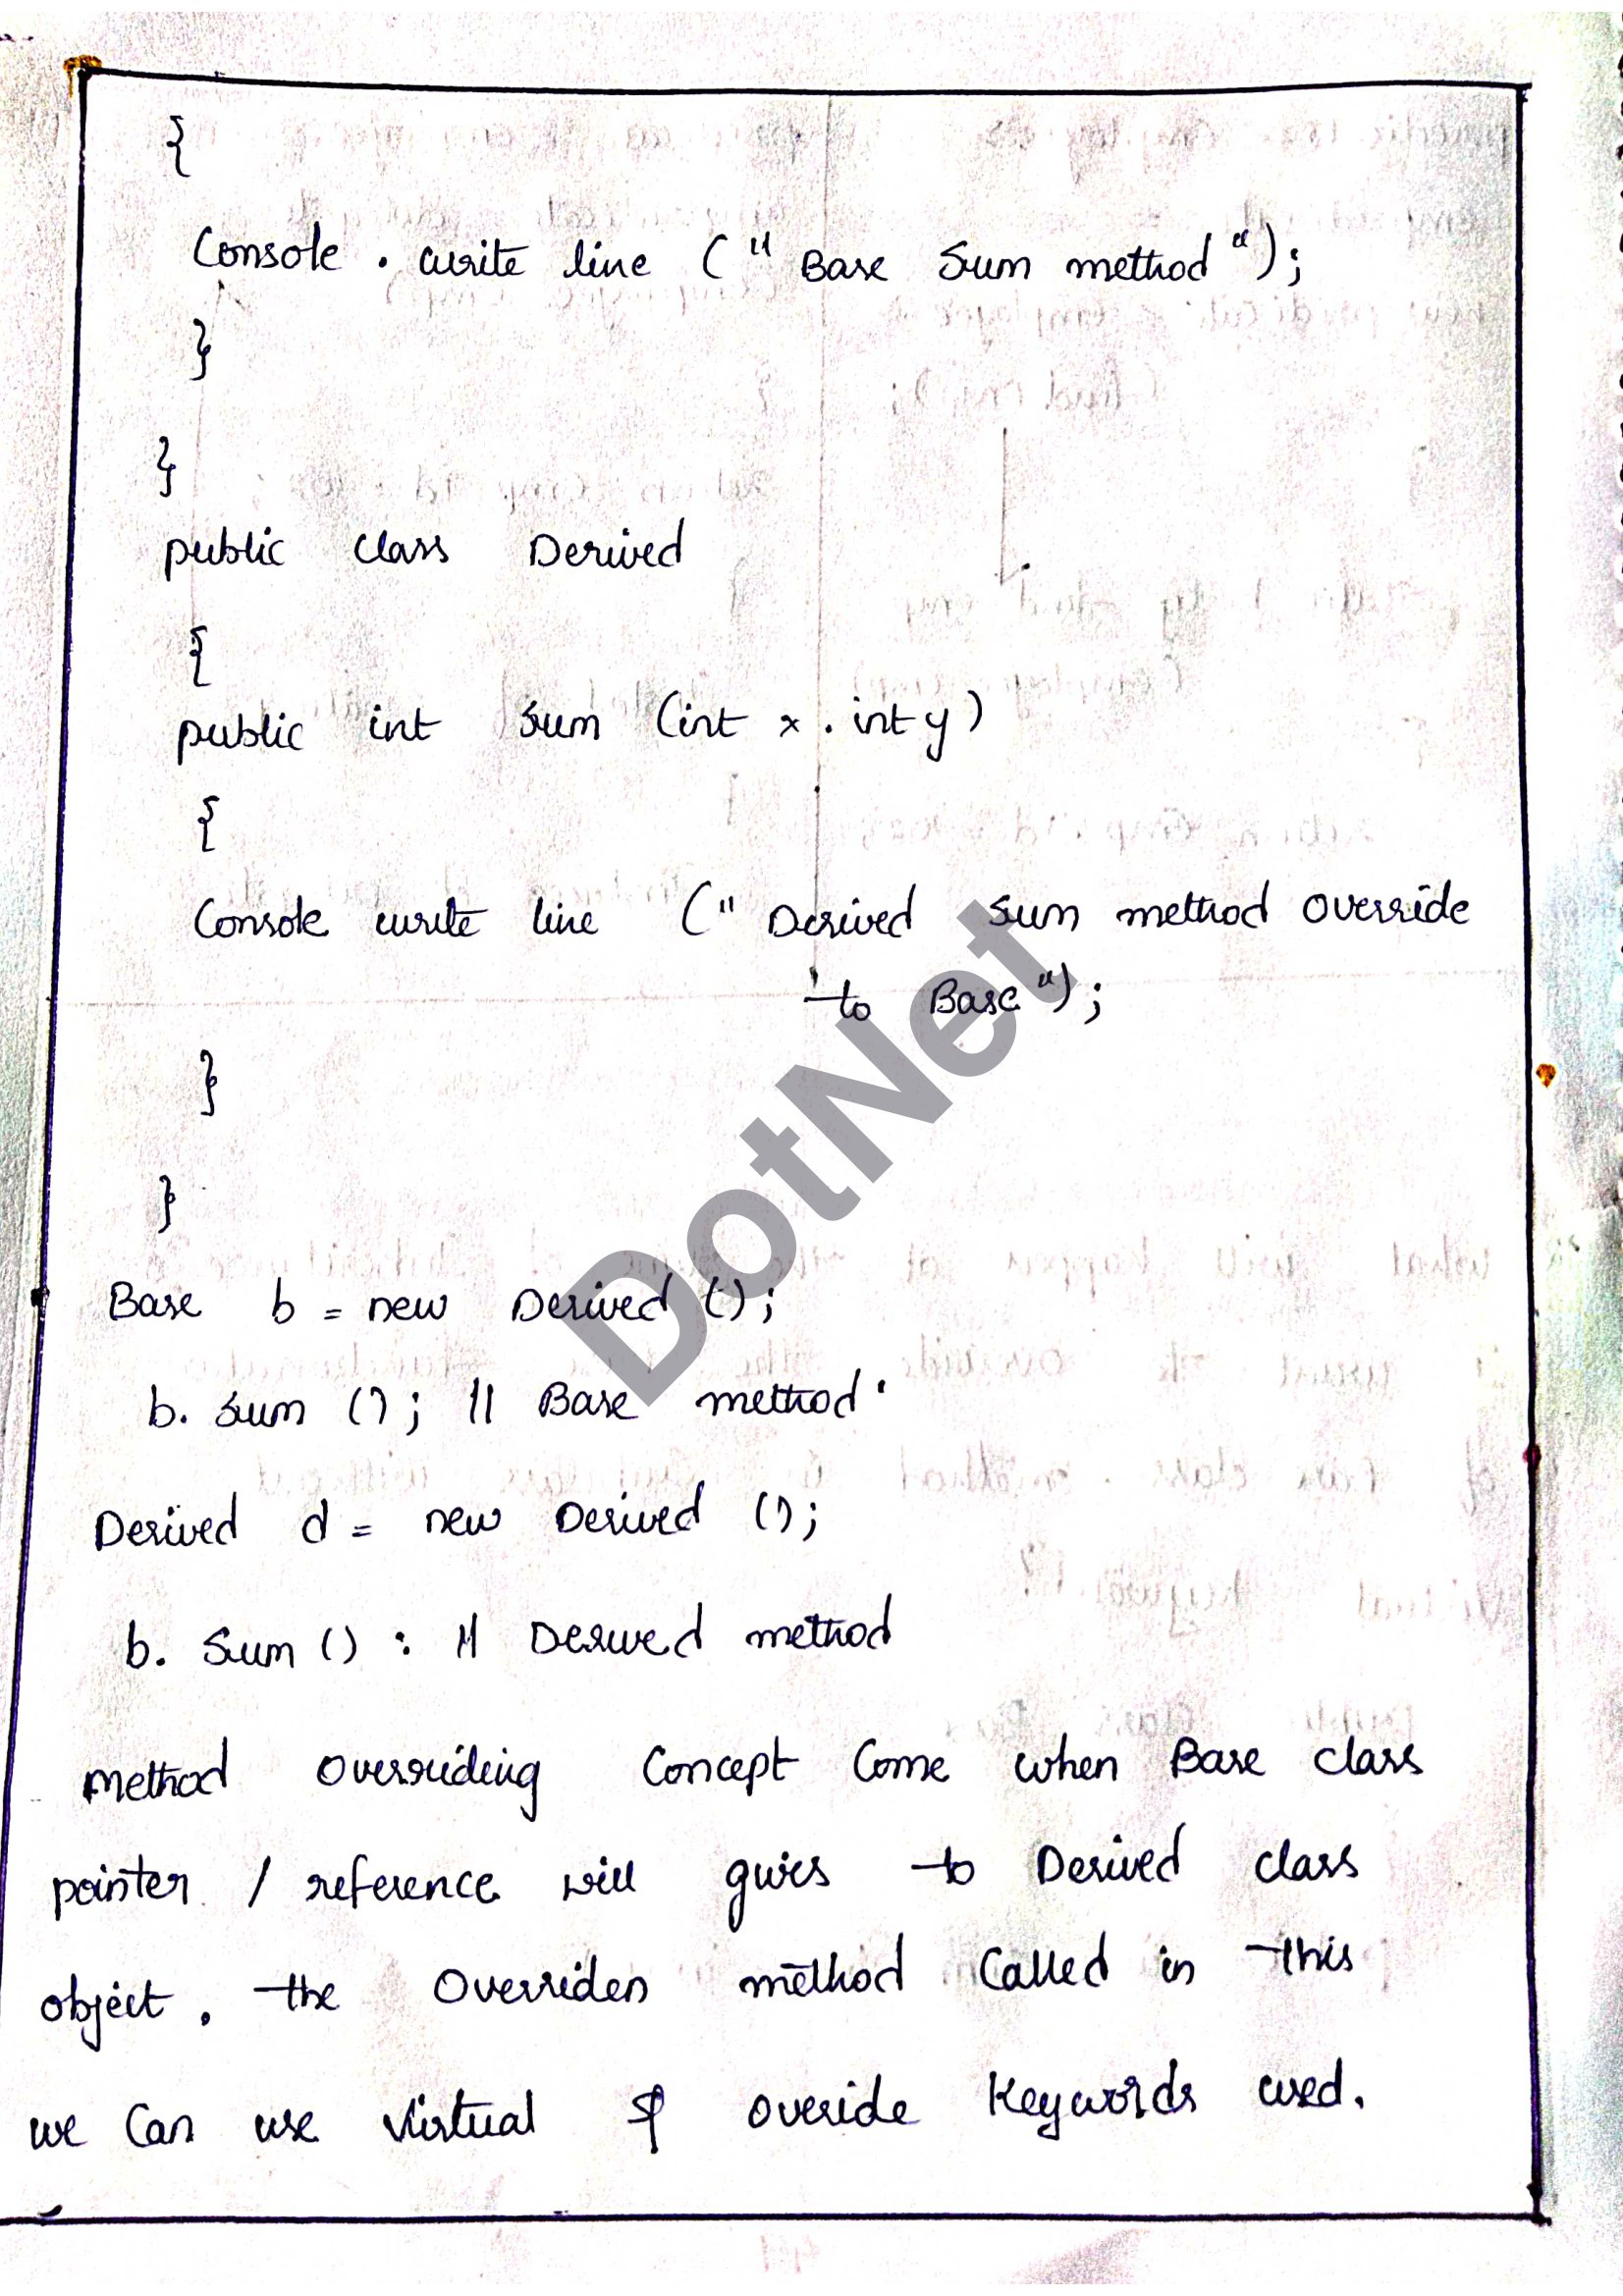 {
Console . write line ( " Base Sum method " ) ;
}
}
public class Derived
{
public int sum (int x . int y )
{
Console write line ( " Derived sum method override
to Base " ) ;
}
}
DotNet
Base b = new Derived ( ) ;
b. sum ( ) ; // Base method .
Derived d = new Derived ( ) ;
b. Sum ( ) : // Derived method
method overriding Concept Come when Base class
pointer / reference will gives to Derived class
object . the Overriden method Called in this
we Can use Virtual & overide Keywords used.